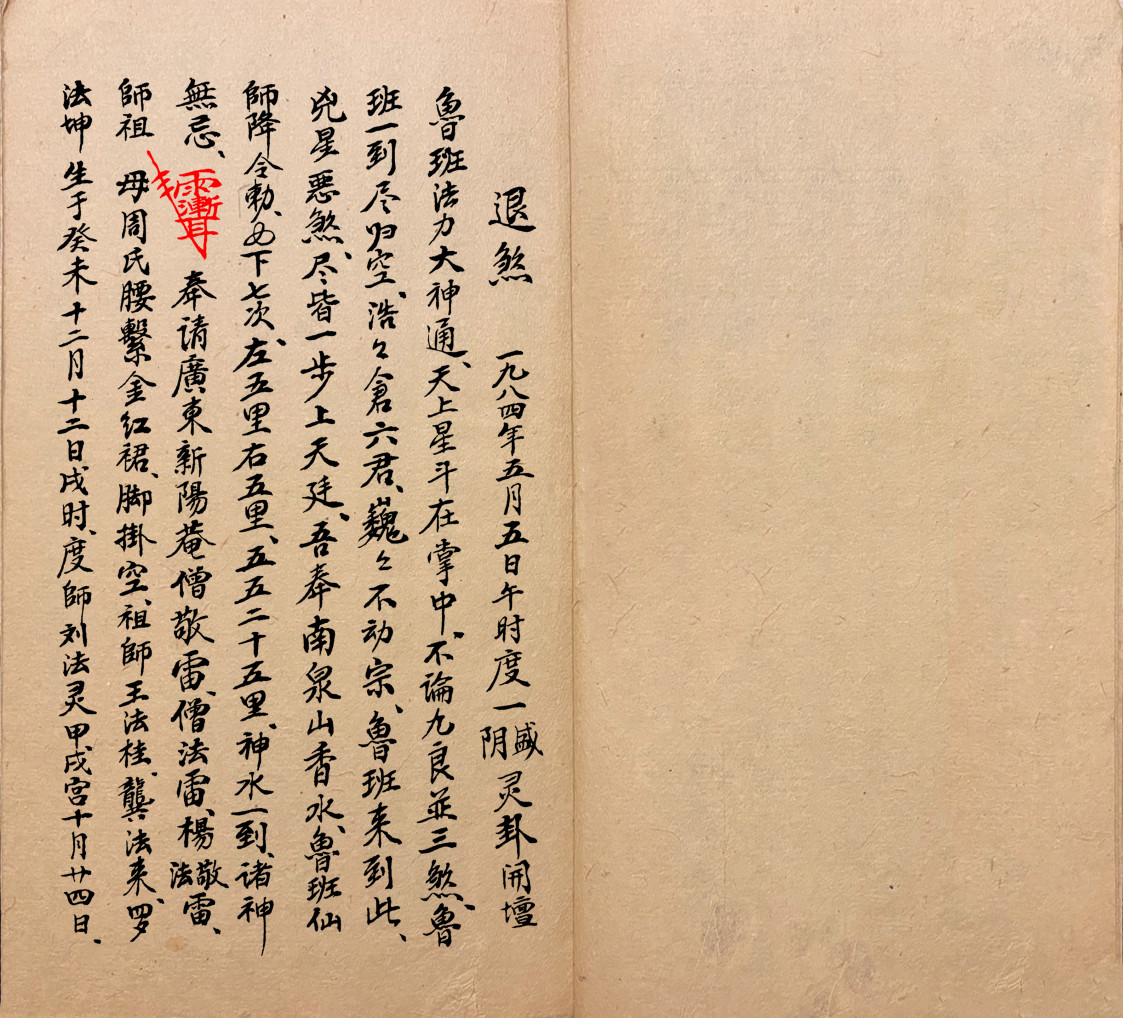 退煞 一九八四年五月五日午时度一盛阴灵卦開壇
魯班法力大神通、天上星斗在掌中、不論九良並三煞、魯
班一到尽归空、浩々倉六君、巍々不动宗、魯班来到此、
兇星恶煞、尽皆一步上天廷、吾奉南泉山香水、魯班仙
師降令勅、四下七次、左五里右五里、五五二十五里、神水一到、诸神
無忌、 奉请廣東新陽菴僧敬雷、僧法雷、楊敬法雷、
師祖 母周氏腰繫金红裙、脚掛空、祖師王法桂、龔法来、罗
法坤生于癸未十二月十二日戌时、度師刘法灵甲戌宫十月廿四日、